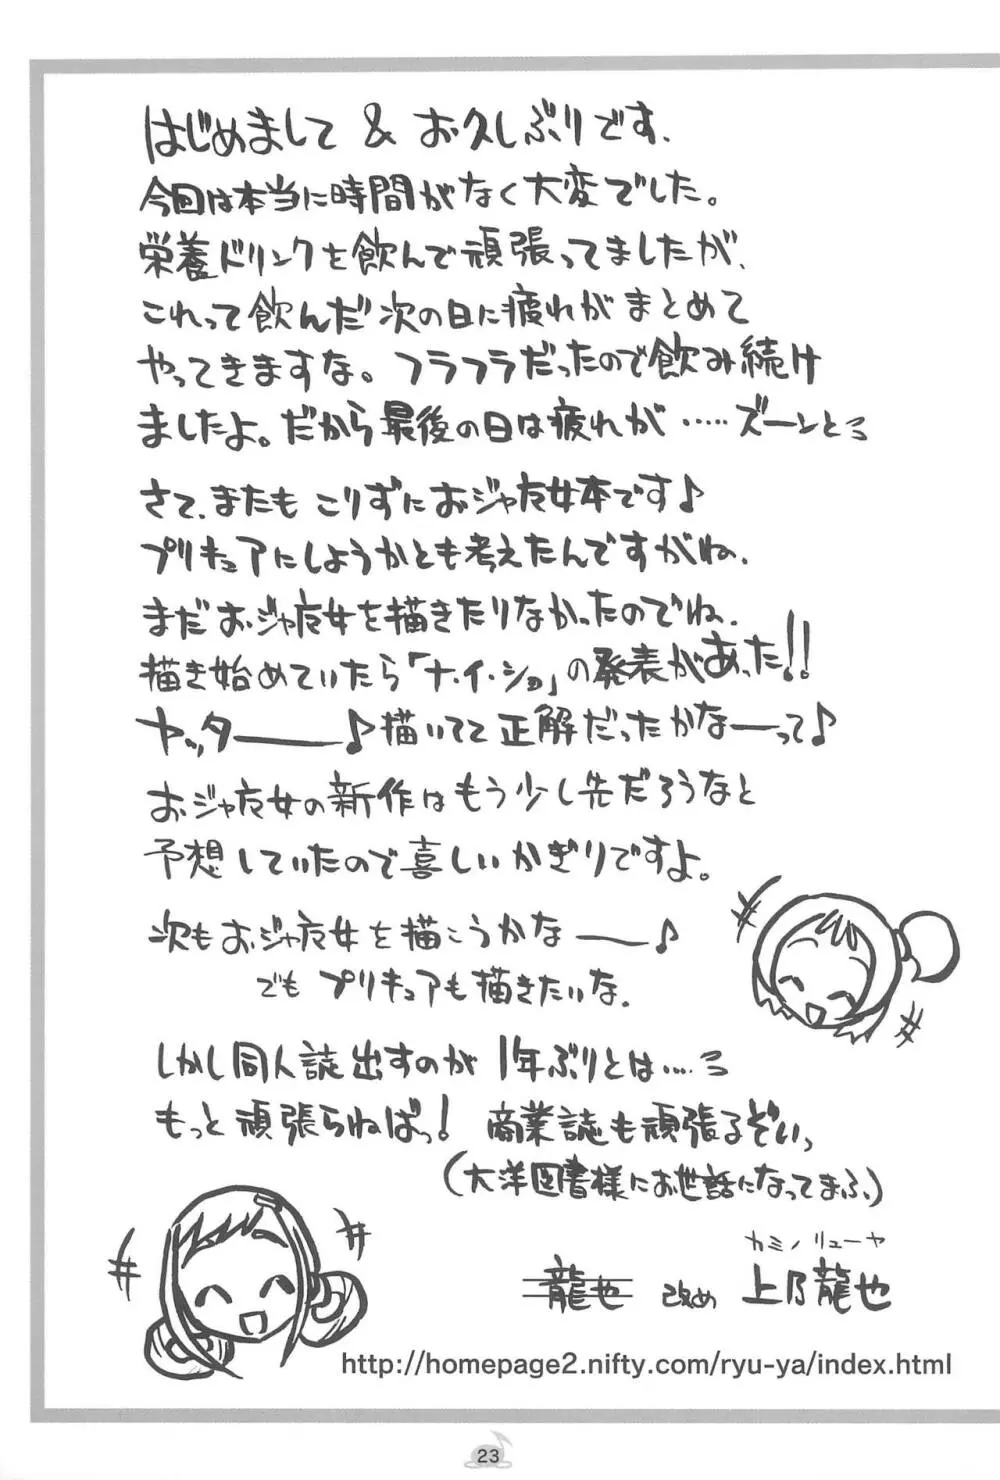 はじめまして & お久しぶりです、
今回は本当に時間がなく大変でした。
栄養ドリンクを飲んで頑張ってましたが、
これって飲んだ次の日に疲れがまとめて
やってきますな。フラフラだったので飲み続け
ましたよ。だから最後の日は疲れが……ズーンとミ
さて、またも こりずにおジャ魔女本です♪
プリキュアにしようかとも考えたんですがね、
まだおジャ魔女を描きたりなかったのでね、
描き始めていたら「ナ・イ・ショ」の発表があった!!
ヤッター――♪描いてて正解だったかなーって♪
おジャ魔女の新作はもう少し先だろうなと
予想していたので喜しいかぎりですよ。
次もおジャ魔女を描こうかなー―♪
でも プリキュアも描きたいな、
しかし同人誌出すのが1年ぶりとは……ミ
もっと頑張らねばっ! 商業誌も頑張るぞいっ
(大洋図書様にお世話になってまふ)
カミノリューヤ
龍也 改め 上乃龍也
http://homepage2.nifty.com/ryu-ya/index.html
23